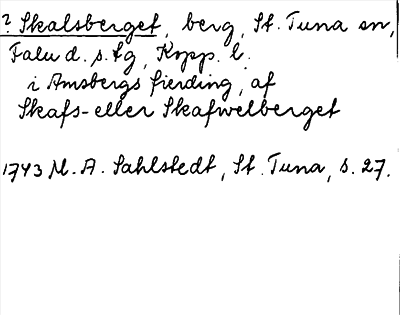 ? Skalsberget, berg, St. Tuna sn,
Falu d. s. tg, Kopp. l.
i Amsbergs fierding, af
Skafs- eller Skafwelberget
1743 M. A. Sahlstedt, St. Tuna, s. 27.